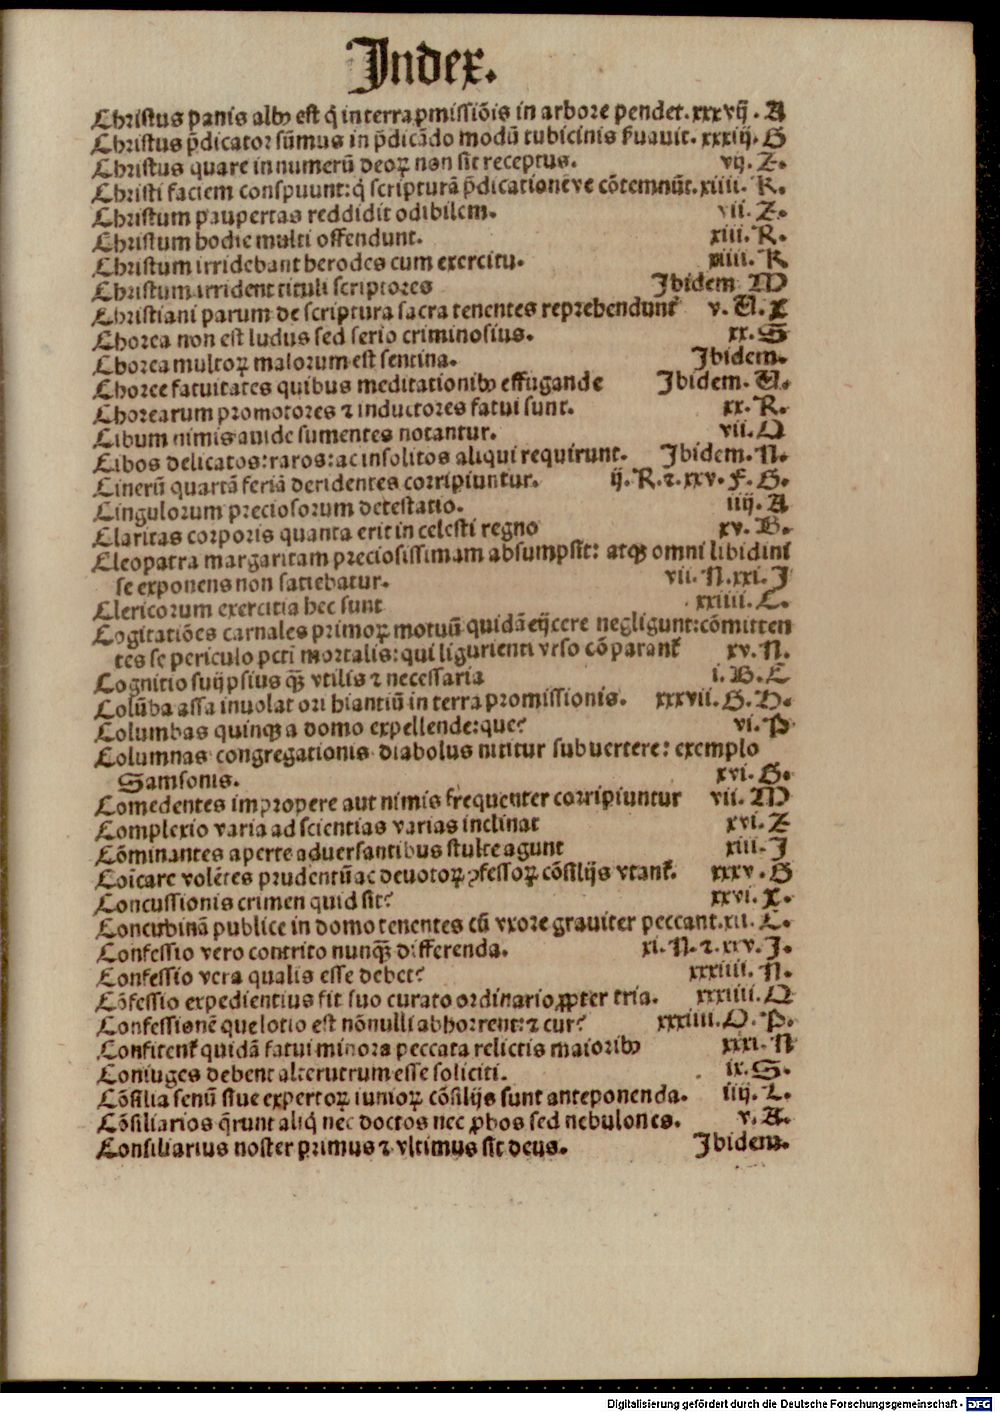 Index.
Christus panis albꝰ est q̇ in terra ꝓmissiõis in arbore pendet. xxxvij. A
Christus p̄dicator sũmus in p̄dicãdo modũ tubicinis ẜuauit. xxxiij. G
Christus quare in numerũ deoꝝ non sit receptus. vij. Z.
Christi faciem conspuunt: q̇ scripturã p̄dicationẽve cõtemnũt. xiiii. K.
Christum paupertas reddidit odibilem. vii. Z.
Christum hodie multi offendunt. xiii. R.
Christum irridebant herodes cum exercitu. xiiii. K
Christum irrident tituli scriptores Ibidem M
Christiani parum de scriptura sacra tenentes reprehendunt᷑ v. U. X
Chorea non est ludus sed serio criminosius. xx. S
Chorea multoꝝ malorum est sentina. Ibidem.
Choree fatuitates quibus meditationibꝰ effugande Ibidem. U.
Chorearum promotores ⁊ inductores fatui sunt. xx. R.
Cibum nimis auide sumentes notantur. vii. O
Cibos delicatos: raros: ac insolitos aliqui requirunt. Ibidem. N.
Cinerũ quartã feriã deridentes corripiuntur. ij. R. ⁊. xxv. F. G.
Cingulorum preciosorum detestatio. iiij. A
Claritas corporis quanta erit in celesti regno xv. B.
Cleopatra margaritam preciosissimam absumpsit: atqꝫ omni libidini
se exponens non satiebatur. vii. N. xxi. I
Clericorum exercitia hec sunt xxiiii. C.
Cogitatiões carnales primoꝝ motuũ quidã eijcere negligunt: cõmitten
tes se periculo pcti mortalis: qui ligurienti vrso cõparant᷑ xv. N.
Cognitio suijpsius qꝫ̃ vtilis ⁊ necessaria i. B. C
Colũba assa inuolat ori hiantiũ in terra promissionis. xxxvii. G. H.
Columbas quinqꝫ a domo expellende: que? vi. P
Columnas congregationis diabolus nititur subuertere: exemplo
Samsonis. xvi. G.
Comedentes impropere aut nimis frequenter corripiuntur vii. M
Complexio varia ad scientias varias inclinat xvi. Z
Cõminantes aperte aduersantibus stulte agunt xiii. I
Coĩcare volẽtes prudentũ ac deuotoꝝ ꝓfessoꝝ cõsilijs vtant᷑. xxxv. G
Concussionis crimen quid sit? xxvi. X.
Concubinã publice in domo tenentes cũ vxore grauiter peccant. xii. C.
Confessio vero contrito nunqꝫ̃ differenda. xi. N. ⁊. xxv. I.
Confessio vera qualis esse debet? xxxiiii. N.
Cõfessio expedientius fit suo curato ordinario ꝓpter tria. xxxiiii. O
Confessionẽ que lotio est nõnulli abhorrent: ⁊ cur? xxxiiii. O. P.
Confitent᷑ quidã fatui minora peccata relictis maioribꝰ xxxi. N
Coniuges debent alterutrum esse soliciti. ix. S.
Cõsilia senũ siue expertoꝝ iunioꝝ cõsilijs sunt anteponenda. iiij. L.
Cõsiliarios q̃runt aliq̇ nec doctos nec ꝓbos sed nebulones. v. A.
Consiliarius noster primus ⁊ vltimus sit deus. Ibidem.
Digitalisierung gefördert durch die Deutsche Forschungsgemeinschaft - DFG